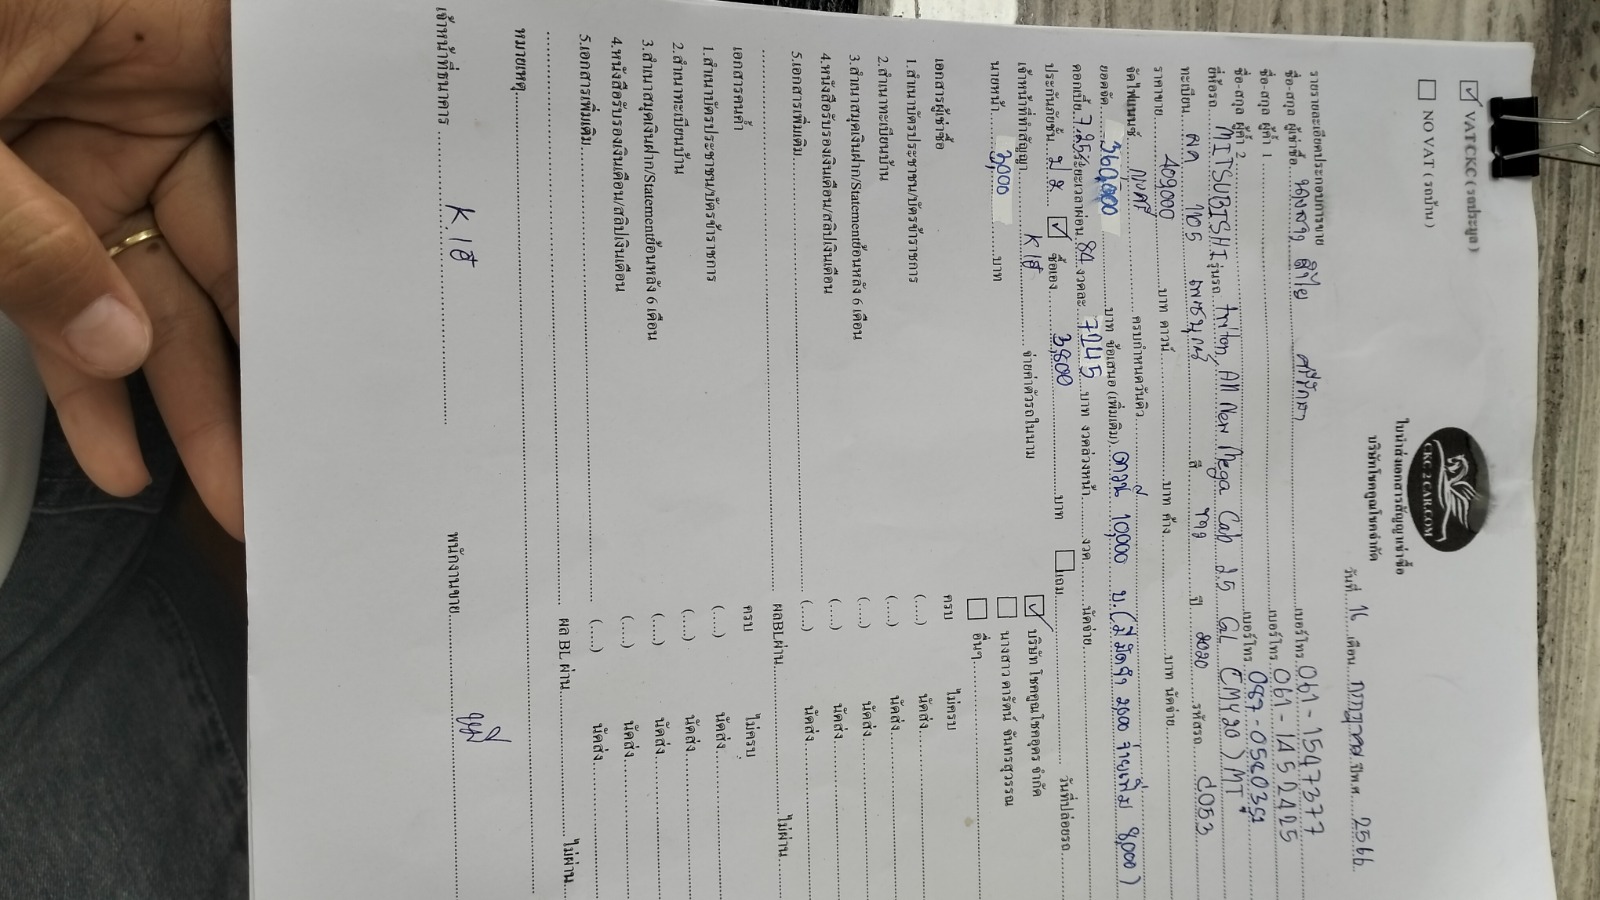 CKC 2 CAR.COM
ใบนำส่งเอกสารสัญญาเช่าซื้อ
บริษัทโชคคูณโชคจำกัด
VAT CKC ( รถประมูล )
NO VAT ( รถบ้าน )
วันที่ 16 เดือน กรกฎาคม ปีพ.ศ. 2566
รายรายละเอียดประกอบการขาย
ชื่อ-สกุล ผู้เช่าซื้อ เบอร์โทร. 061-1547377
ชื่อ-สกุล ผู้ค้ำ 1 เบอร์โทร. 061-1452425
ชื่อ-สกุล ผู้ค้ำ 2 เบอร์โทร. 087-0520352
ยี่ห้อรถ MITSUBISHI รุ่นรถ Triton, All New Mega Cab 2.5 GL (MY20) MT
ทะเบียน ผค 1105 เพชรบูรณ์ สี ขาว ปี 2020 รหัสรถ C053
ราคาขาย 409,000 บาท ดาวน์ บาท ค้าง บาท นัดจ่าย
จัดไฟแนนซ์ ครบกำหนดวันคิว
ยอดจัด 360,000 บาท ข้อเสนอ (เพิ่มเติม) ดาวน์ 10,000 บ. (มีมัดจำ 2,000 จ่ายเพิ่ม 8,000)
ดอกเบี้ย 7.25 ระยะเวลาผ่อน 84 งวดละ 7,245 บาท งวดล่วงหน้า งวด นัดจ่าย
ประกันภัยชั้น ซื้อเอง 3,800 บาท แถม วันที่ปล่อยรถ
เจ้าหน้าที่ทำสัญญา จ่ายค่าตัวรถในนาม บริษัท โชคคูณโชคอุดร จำกัด
นายหน้า 3,000 บาท นางสาว ดารัตน์ จันทรสุวรรณ
อื่นๆ
เอกสารผู้เช่าซื้อ ครบ ไม่ครบ
1.สำเนาบัตรประชาชน/บัตรข้าราชการ (....) นัดส่ง
2.สำเนาทะเบียนบ้าน (....) นัดส่ง
3.สำเนาสมุดเงินฝาก/Statementย้อนหลัง 6 เดือน (....) นัดส่ง
4.หนังสือรับรองเงินเดือน/สลิปเงินเดือน (....) นัดส่ง
5.เอกสารเพิ่มเติม (....) นัดส่ง
ผลBLผ่าน ไม่ผ่าน
เอกสารคนค้ำ ครบ ไม่ครบ
1.สำเนาบัตรประชาชน/บัตรข้าราชการ (....) นัดส่ง
2.สำเนาทะเบียนบ้าน (....) นัดส่ง
3.สำเนาสมุดเงินฝาก/Statementย้อนหลัง 6 เดือน (....) นัดส่ง
4.หนังสือรับรองเงินเดือน/สลิปเงินเดือน (....) นัดส่ง
5.เอกสารเพิ่มเติม (....) นัดส่ง
ผล BL ผ่าน ไม่ผ่าน
หมายเหตุ
เจ้าหน้าที่ธนาคาร พนักงานขาย